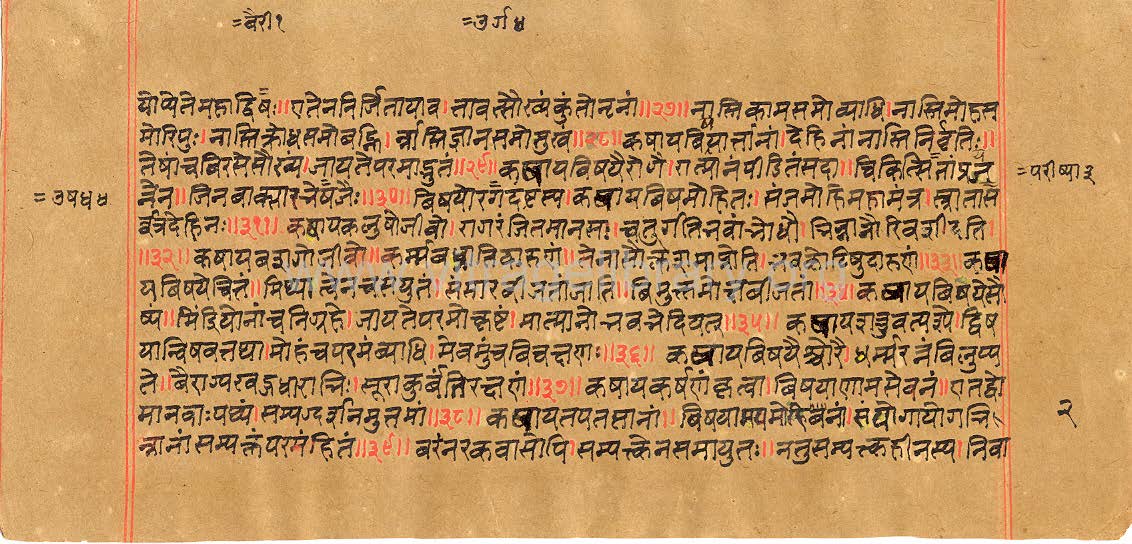 =बैरी१ =दुर्गंध
योप्येते महाद्विषः॥ एतेन निर्जिता याव। तावत्सौख्यं कुतो नृनां॥२७॥ नास्ति कामसमो व्याधि। नास्ति मोहस
मोरिपुः। नास्ति क्रोधसमो बह्नि। र्नास्ति ज्ञानसमो सुखं॥२८॥ कषायबिषयार्त्तानां। देहिनां नास्ति निर्वृतिः।
तेषां च बिरसे सौख्यं। जायते परमाद्भुतं॥२९॥ कषायबिषयैरोगै। रात्मानं पीडितं सदा॥ चिकित्सितां प्रयत्
नेन॥ जिनबाक्सारभेषजैः॥३०॥ बिषयोरगदष्टस्य। कषायबिषमोहितः। संजमो हि महामंत्र। स्त्राता स
=परीष्या३
=उषध४
र्वत्र देहिनः॥३१॥ कषायकलुषो जीवो। रागरंजितमानसः। चतुर्गतिभवांभोधौ। भिन्ना नौरिव सीदति।
॥३२॥ कषायबशगो जीवो॥ कर्म्म बध्नाति दारुणं॥ तेनासौ क्लेशमाप्नोति। भवकोटिषु दारुणं॥३३॥ कषा
यबिषयैश्चितं। मिथ्यात्वेन च संयुतं। संसारबीजतां जाति। बिमुक्तं मोक्षबीजतां॥३४॥ कषायबिषये सौ
ख्यं॥ मिंद्रियानां च निग्रहे। जायते परमोत्कृष्टं। मात्मानो भवभेदि यत्॥३५॥ कषायशत्रुवत्पश्ये। द्विष
यान्विषवत्तथा। मोहं च परमं व्याधि। मेवमुंच बिचक्षणः॥३६॥ कषायबिषयैश्चौरै। धर्म्मरत्नं बिलुप्य
ते॥ बैराग्यखड्गधाराभिः। सूराकुर्बंति रक्षणं॥३७॥ कषायकर्षणं कृत्वा। बिषयाणामसेवनं। एतद्वो
मानवाः पथ्यं। सम्यग्दर्शनमुत्तमं॥३८॥ कषायतपतप्तानां। बिषयामयमोहिनां। संयोगायोगखि
२
न्नानां सम्यक्तं परमं हितं॥३९॥ बरं नरकवासोपि। सम्यक्तेन समायुतः॥ नतु सम्यक्तहीनस्य। निवा
www.vitragelibrary.org